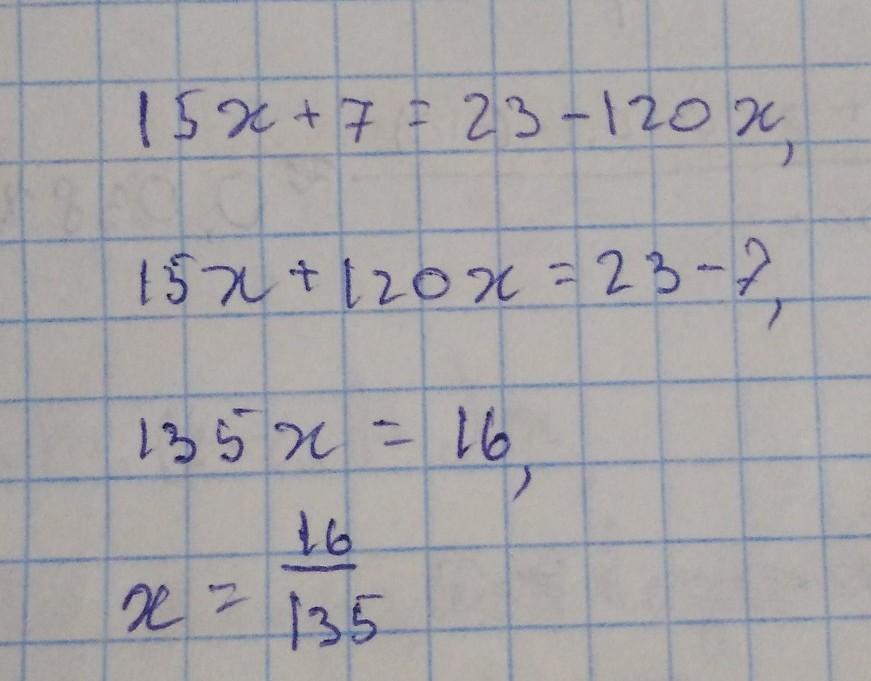 15x+7=23-120x,
15x+120x=23-7,
135x=16,
x=16/135